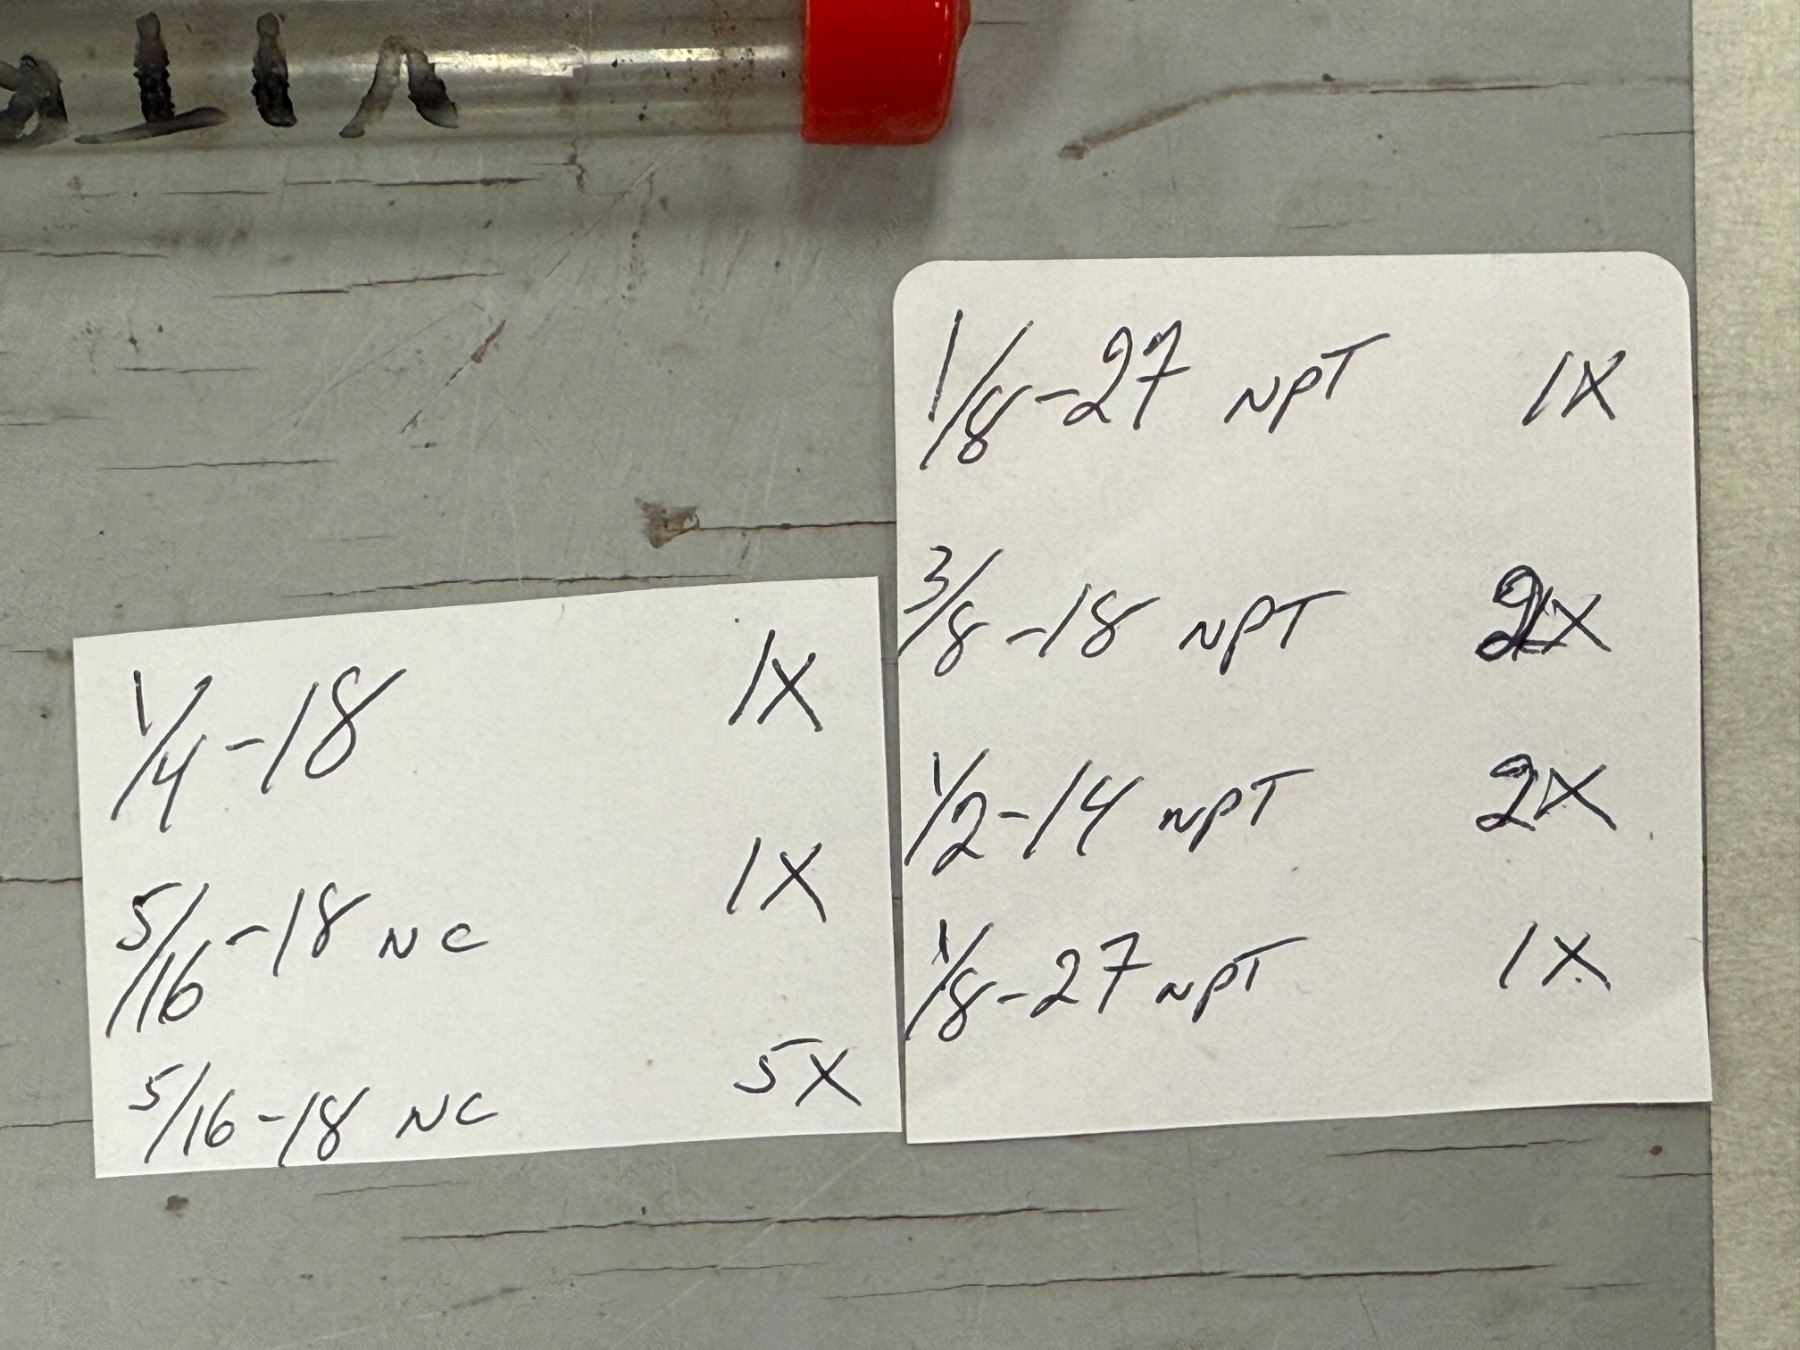 1/4-18 1X
5/16-18 NC 1X
5/16-18 NC 5X
1/8-27 NPT 1X
3/8-18 NPT 2X
1/2-14 NPT 2X
1/8-27 NPT 1X